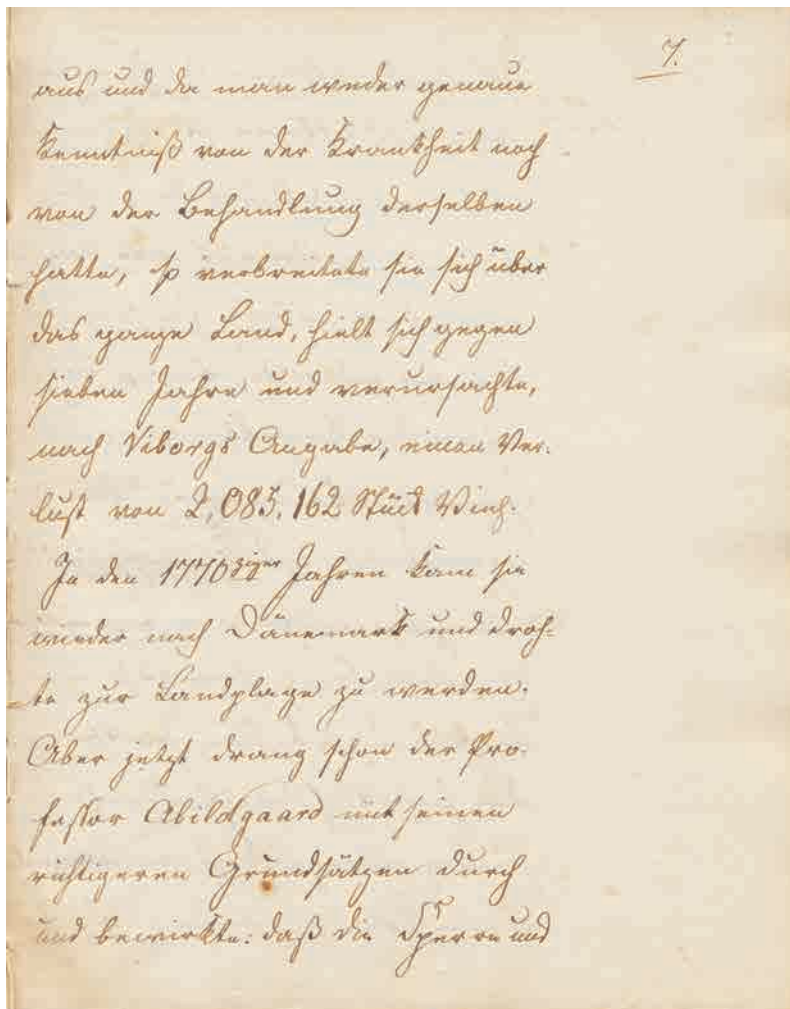 7.
aus und da man weder genaue
Kenntniß von der Krankheit noch
von der Behandlung derselben
hatte, so verbreitete sie sich über
das ganze Land, hielt sich gegen
sieben Jahre und verursachte,
nach Viborgs Angabe, einen Ver-
lust von 2,085,162 Stück Vieh.
In den 1770ziger Jahren kam sie
wieder nach Dänemark und droh-
te zur Landplage zu werden.
Aber jetzt drang schon der Pro-
fessor Abildgaard mit seinen
richtigeren Grundsätzen durch
und bewirkte: daß die Sperre und